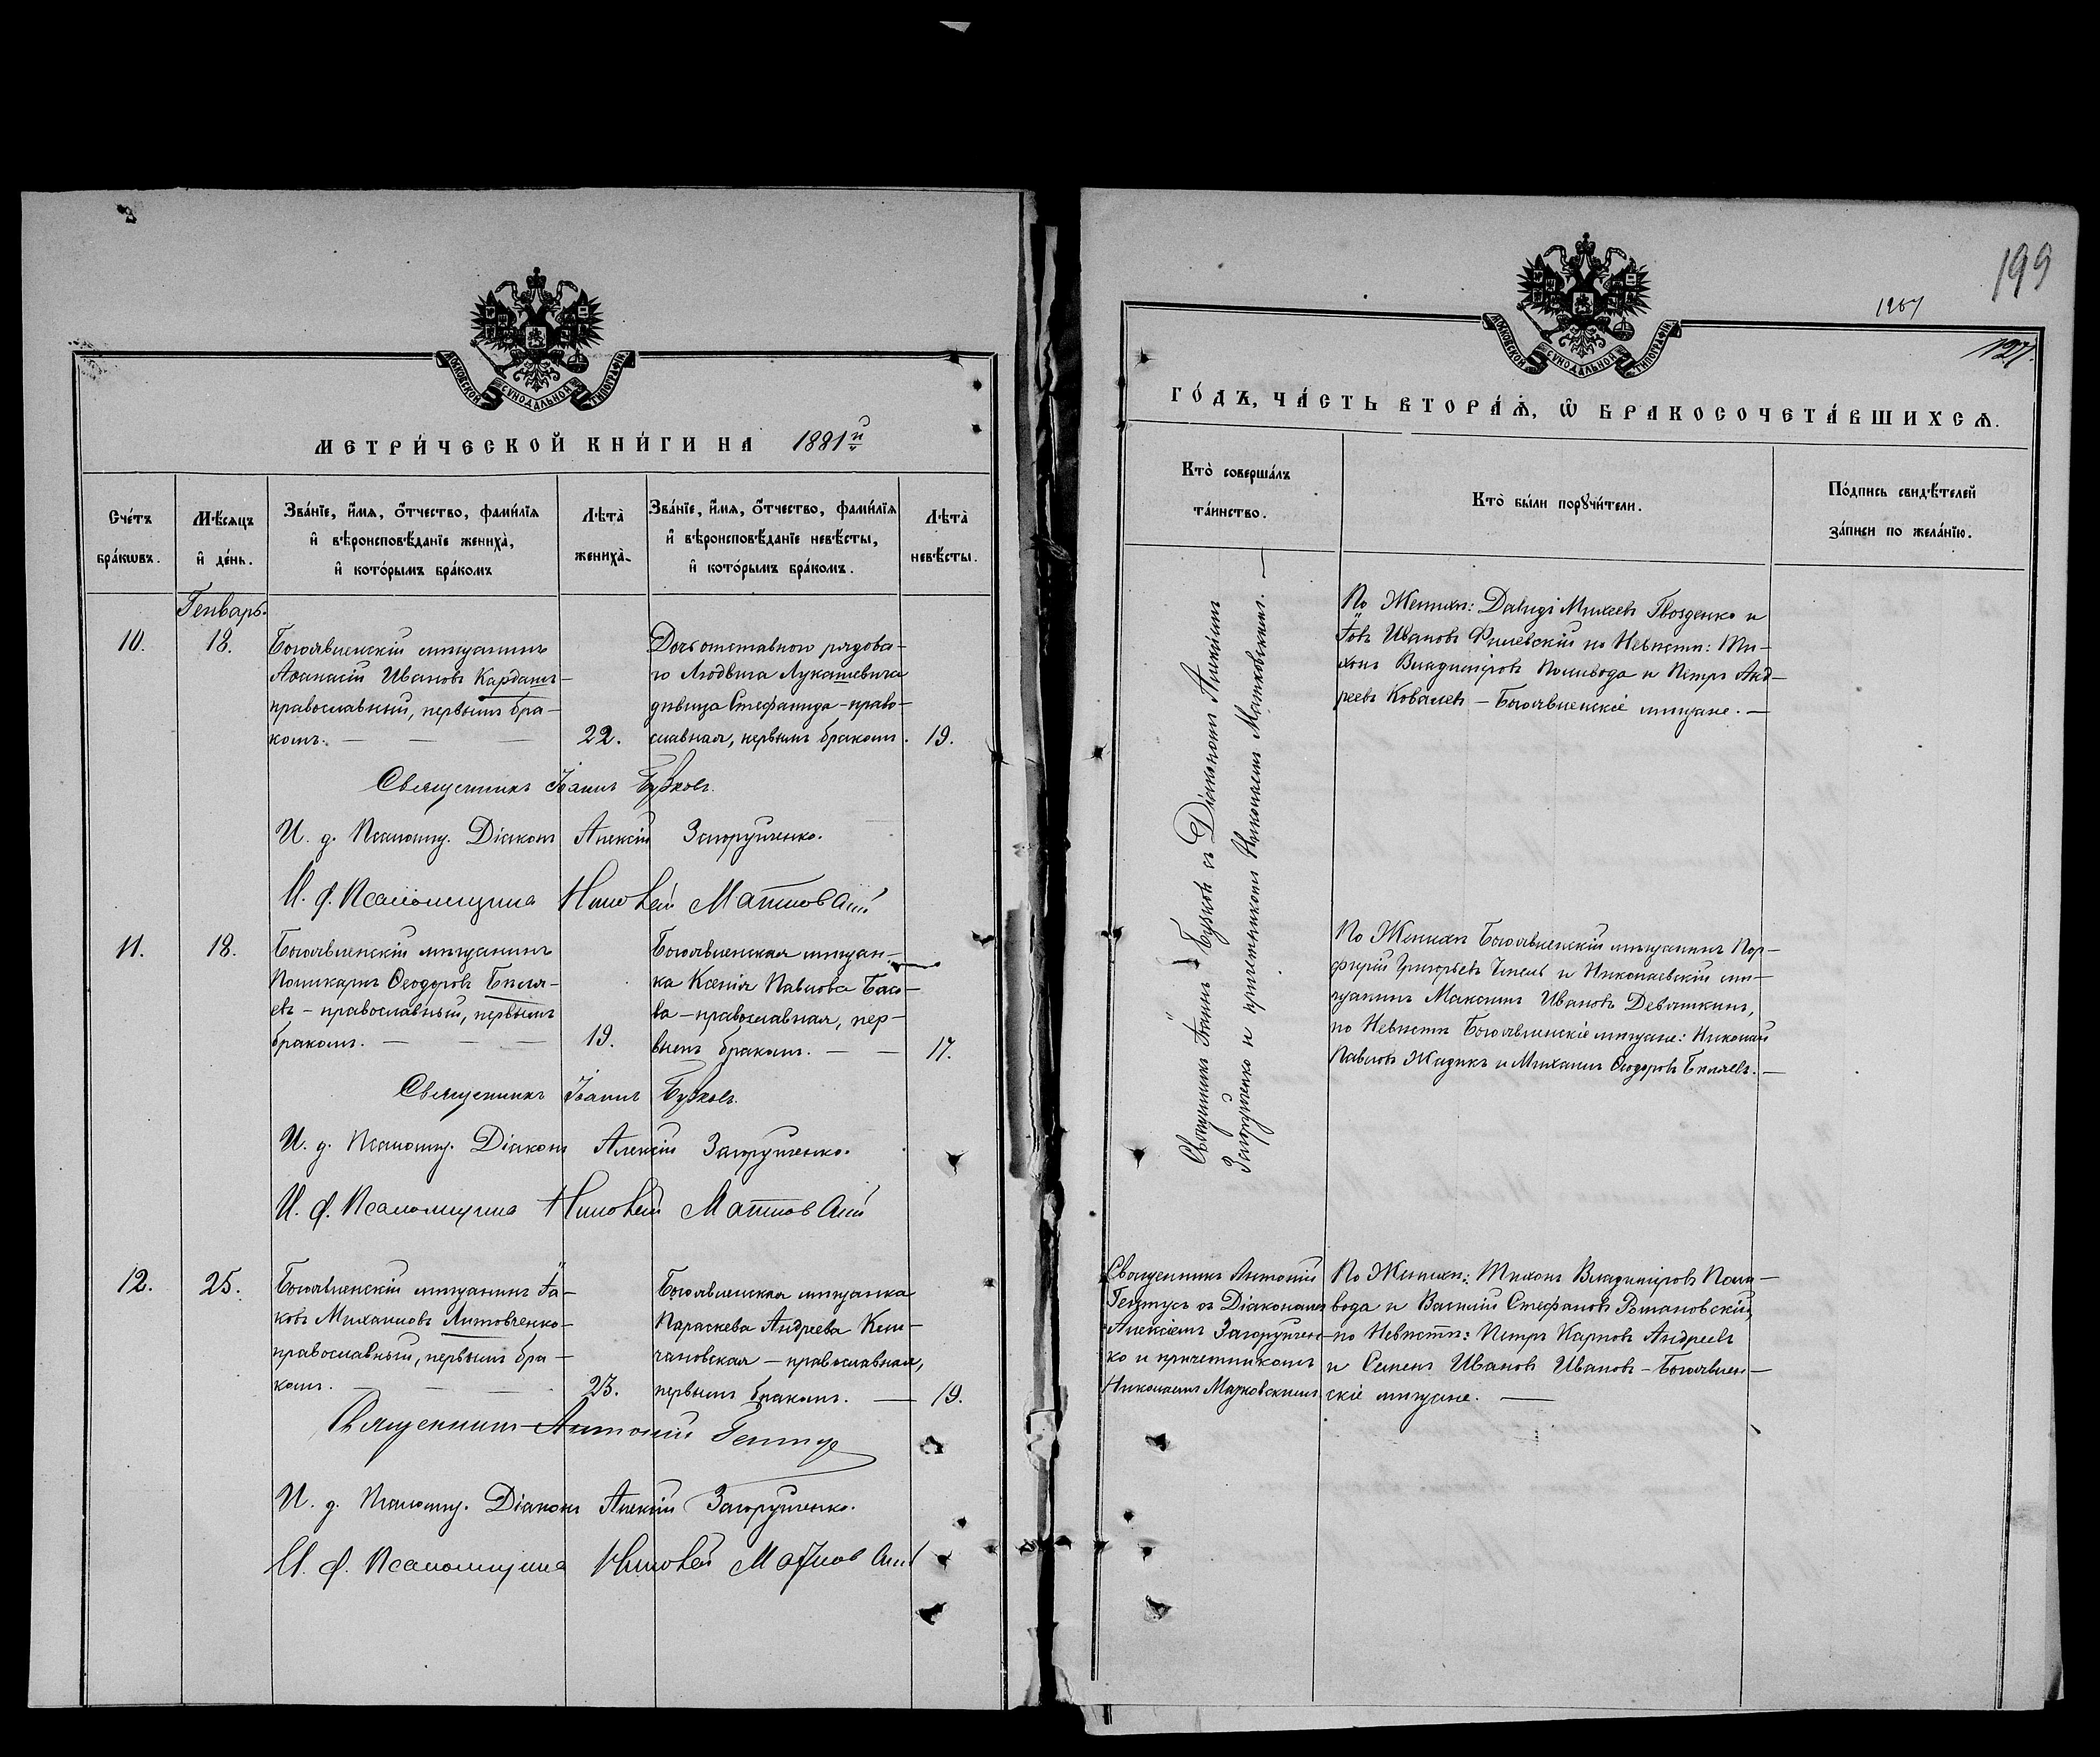 МОСКОВСКОЙ СѴНОДАЛЬНОЙ ТИПОГРАФІИ
МЕТРИ́ЧЕСКОЙ КНИ́ГИ НА 1881й
Сче́тъ бра́кѡвъ.
Мѣ́сяцъ и҆ де́нь.
Зва́нїе, и҆́мя, ѻ҆́тчество, фами́лїя и҆ вѣроисповѣ́данїе жениха̀, и҆ кото́рымъ бра́комъ
Лѣта̀ жениха̀.
Зва́нїе, и҆́мя, ѻ҆́тчество, фами́лїя и҆ вѣроисповѣ́данїе невѣ́сты, и҆ кото́рымъ бра́комъ.
Лѣта̀ невѣ́сты.
Генварь.
10.
18.
Богоявленскій мѣщанинъ
Аѳанасій Ивановъ Кардашъ –
православный, первымъ бра–
комъ. — — —
22.
Дочь отставного рядова–
го Людвига Лукашевича
дѣвица Стефанида – право–
славная, первымъ бракомъ.
19.
Священникъ Іоаннъ Бузковъ.
И. д. Псаломщ. Діаконъ Алексій Загорульченко.
И. д. Псаломщика Николай
11.
18.
Богоявленскій мѣщанинъ
Поликарпъ Ѳеодоровъ Бѣля–
евъ – православный, первымъ
бракомъ. — — —
19.
Богоявленская мѣщан–
ка Ксенія Павлова Басо–
ва – православная, пер–
вымъ бракомъ. — —
17.
Священникъ Іоаннъ Бузковъ.
И. д. Псаломщ. Діаконъ Алексій
И. д. Псаломщика Николай
12.
25.
Богоявленскій мѣщанинъ Іа–
ковъ Михаиловъ Литовченко –
православный, первымъ бра–
комъ. — — —
23.
Богоявленская мѣщанка
Параскева Андреева
– православная,
первымъ бракомъ. —
19.
Священникъ Антоній
И. д. Псаломщ. Діаконъ Алексій
И. д. Псаломщика Николай
199
1967
127.
МОСКОВСКОЙ СѴНОДАЛЬНОЙ ТИПОГРАФІИ
ГО́ДЪ, ЧА́СТЬ ВТОРА́Ѧ, Ѽ БРАКОСОЧЕТА́ВШИХСѦ.
Кто̀ соверша́лъ та́инство.
Кто̀ бы́ли порꙋчи́тели.
По́дпись свидѣ́телей за́писи по жела́нїю.
Священникъ Іоаннъ Бузковъ съ Діакономъ Алексіемъ
и причетникомъ Николаемъ —
По Женихѣ: Давидъ Михеевъ Гвозденко и
Іовъ Ивановъ Филевскій по Невѣстѣ: Ти–
хонъ Владиміровъ Поливода и Петръ Анд–
реевъ Ковалевъ – Богоявленскіе мѣщане. —
По Женихѣ Богоявленскій мѣщанинъ Пор–
фирій Григорьевъ и Николаевскій мѣ–
щанинъ Максимъ Ивановъ Девяткинъ,
по Невѣстѣ Богоявленскіе мѣщане: Николай
Павловъ Жидикъ и Михаилъ Ѳеодоровъ Бѣляевъ. —
Священникъ Антоній
съ Діакономъ
Алексіемъ Загорульчен–
ко и причетникомъ
Николаемъ
По Женихѣ: Тихонъ Владиміровъ Поли–
вода и Василій Стефановъ Романовскій,
по Невѣстѣ: Петръ Карповъ Андреевъ
и Семенъ Ивановъ Ивановъ – Богоявлен–
скіе мѣщане. —